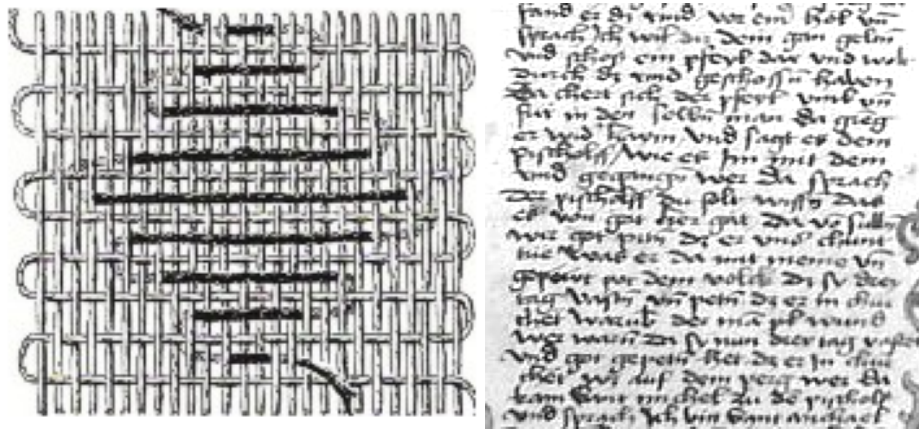 fand er dz vnd wer ein hol vn̄
sprach Ich wil dir dem gan geltn̄
vnd schos ein pfeyl dar vnd wolt
durch dz vnd geschossn̄ haben
Da chert sich der pfeyl vmb vn̄
fur in den selbn̄ man da gieg
er wid haym / vnd sagt es dem
pischolff / wie es Im mit dem
vnd gegangn̄ wer Da sprach
der pischolff Du solt wissn̄ das
es von got her gat Da vō sulln̄
wir got pittn̄ dz er vns chunt
tue was er da mit meine vn̄
dem volck dz sy drei
tag vastn̄ vn̄ petn̄ dz er in
warūb der mā
wer warn̄ Da sy nun drei tag
vnd got gepetn̄ het dz er In
auf dem perg wer Da
kam Sant michel zu de pischolff
vnd sprach Ich bin Sant michael